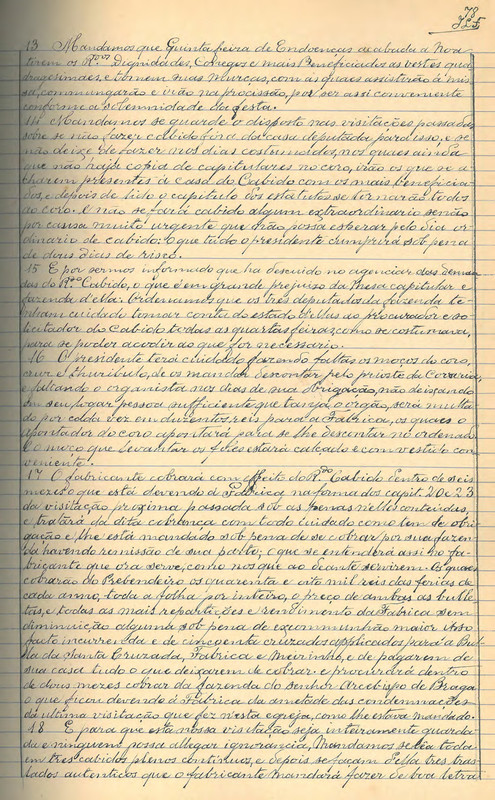 78
325
13 Mandamos que Quinta feira de Endoenças acabada a Noa
tirem os R.dos Dignidades, Conegos e mais Beneficiados as vestes qua
dragesimaes, e tomem suas Murças, com as quaes assistirão á mis
sa, commungarão e virão na procissão, por ser assi conveniente
conforme a solemnidade da festa.
14 Mandamos se guarde o disposto nas visitações passadas
sobre se não fazer cabido fóra da casa deputada para isso, e se
não deixe de fazer nos dias costumados, nos quaes ainda
que não haja copia de capitulares no coro, irão os que se a
charem presentes á casa do Cabido com os mais beneficia
dos, e depois de lido o capitulo dos estatutos se tornarão todos
ao coro. E não se fará cabido algum extraordinario senão
por causa muito urgente que não possa esperar pelo dia or
dinario de cabido. O que tudo o presidente cumprirá sob pena
de dous dias de risco.
15 E por sermos informado que ha descuido no agenciar das deman
das do R.do Cabido, o que é em grande prejuizo da Mesa capitular e
fazenda d'ella: Ordenamos que os tres deputados da fazenda te
nham cuidado tomar conta do estado d'ellas ao procurador e so
licitador do Cabido todas as quartas feiras, como se costumava,
para se poder acodir ao que fôr necessario.
16 O Presidente terá cuidado fazendo faltas os moços do coro,
cruz e thuribulo, de os mandar descontar pelo prioste da Coraria,
e faltando o organista nos dias de sua obrigação, não deixando
em seu logar pessoa sufficiente que tanja o orgão, será multa
do por cada vez em duzentos reis para a Fabrica, os quaes o
apontador do coro apontará para se lhe descontar no ordenado.
E o moço que levantar os folles estará calçado e com vestido con
veniente.
17 O fabricante cobrará com effeito do R.do Cabido dentro de seis
mezes o que está devendo á Fabrica na forma dos capit. 20 e 23
da visitação proxima passada sob as penas n'elles conteúdas,
e tratará da dita cobrança com todo cuidado como tem de obri
gação e lhe está mandado sob pena de se cobrar por sua fazen
da havendo remissão de sua parte; o que se entenderá assi no fa
bricante que ora serve, como nos que ao deante servirem. Os quaes
cobrarão do Prebendeiro os quarenta e oito mil reis das ferias de
cada anno, toda a folha por inteiro, o preço de ambas as bulle
tas, e todas as mais repartições e rendimento da Fabrica sem
diminuição alguma sob pena de excommunhão maior ipso
facto incurrenda e de cincoenta cruzados applicados para a Bul
la da Santa Cruzada, Fabrica e Meirinho, e de pagarem de
sua casa tudo o que deixarem de cobrar. E procurará dentro
de dous mezes cobrar da fazenda do senhor Arcebispo de Braga
o que ficou devendo á Fabrica da ametade das condemnações
da ultima visitação que fez n'esta egreja, como lhe estava mandado.
18 E para que esta nossa visitação seja inteiramente guarda
da e ninguem possa allegar ignorancia, Mandamos se lêa toda
em tres cabidos plenos continuos, e depois se façam d'ella tres tras
lados autenticos que o fabricante mandará fazer de boa letra